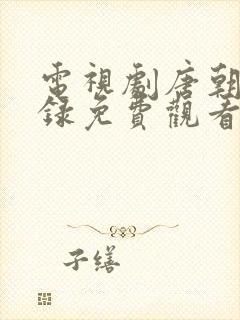 電視劇唐朝
錄免費觀看
子繕